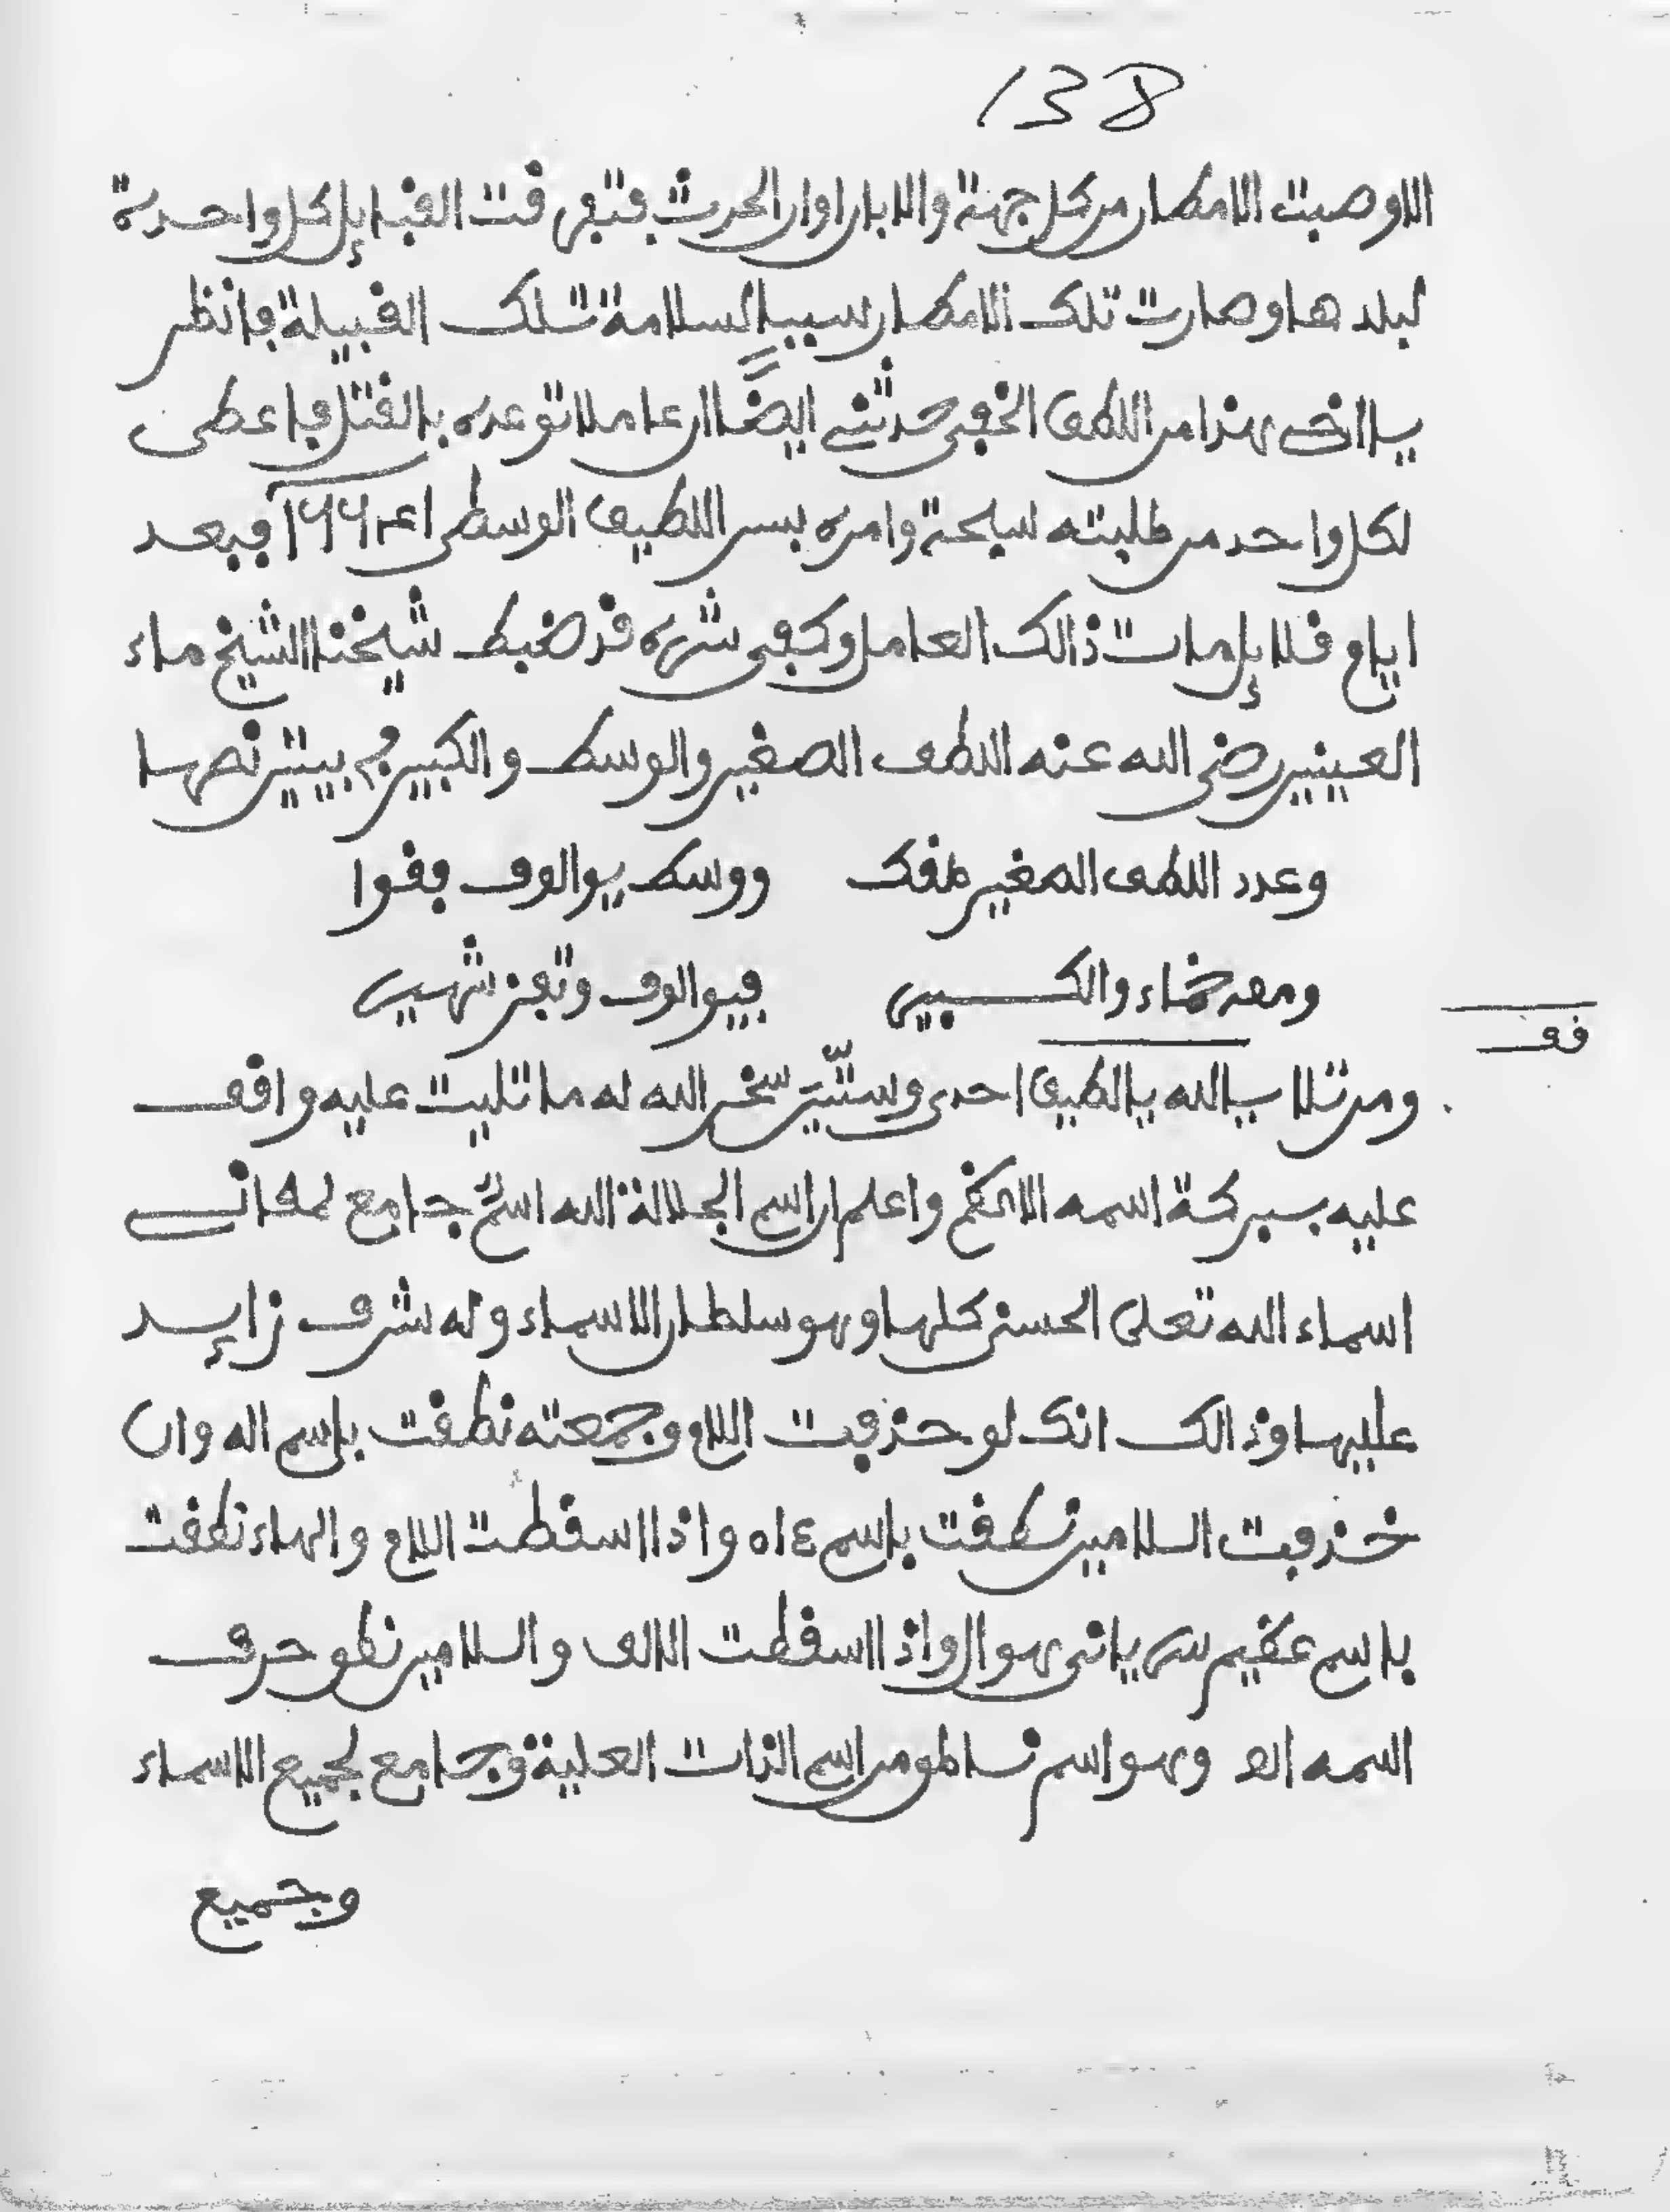 138
الاوصبت الامطار من كل جهة والابار اوان الحرث فتفرقت القبايل كل واحدة
لبلدها وصارت تلك الامطار سببا لسلامة تلك القبيلة فانظر
يا اخى هذا من اللطف الخفى حدثنى ايضًا ان عاملا توعده بالقتل فاعطى
لكل واحد من طلبته سبحة وامره بسر اللطيف الوسطى فبعد
ايام قلايل مات ذالك العامل وكفى شره قد ضبط شيخنا الشيخ ماء
العينين رضى الله عنه اللطف الصغير والوسط والكبير فى بيتين نصهما
وعدد اللطف الصغير ووسط يوالوف فقوا
والكبير فيوالوف شهير
قف
ومن تلا يا الله يا لطيف احدى وستّين سخر الله له ما تليت عليه واقف
عليه ببركة اسمه الاعظم واعلم ان اسم الجلالة الله اسم جامع لمعانى
اسماء الله تعلى الحسنى كلها وهو سلطان الاسماء وله شرف زايد
عليها وذالك انك لو حذفت اللام وجمعته نطقت باسم اله وان
حذفت اللامين نطقت باسم ءاه واذا اسقطت اللام والهاء نطقت
باسم عظيم سريانى هو ال واذا اسقطت الالف واللامين نطق حرف
اسمه وهو اسم من اسم الذات العلية وجامع لجميع الاسماء
وجميع